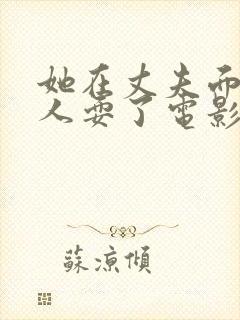 她在丈夫而
人耍了電影
蘇涼傾